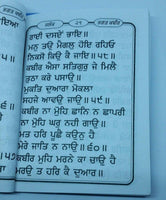 ਸਲੋਕ ੨੧ ਭਗਤ ਕਬੀਰ
ਰਾਈ ਦਸਏਂ ਭਾਇ॥
ਮਨੁ ਤਉ ਮੈਗਲੁ ਹੋਇ ਰਹਿਓ
ਨਿਕਸੋ ਕਿਉ ਕੈ ਜਾਇ॥੫੮॥
ਕਬੀਰ ਐਸਾ ਸਤਿਗੁਰੁ ਜੇ ਮਿਲੈ
ਤੁਠਾ ਕਰੇ ਪਸਾਉ॥
ਮੁਕਤਿ ਦੁਆਰਾ ਮੋਕਲਾ
ਸਹਜੇ ਆਵਉ ਜਾਉ॥੫੯॥
ਕਬੀਰ ਨਾ ਮੋੁਹਿ ਛਾਨਿ ਨ ਛਾਪਰੀ
ਨਾ ਮੋੁਹਿ ਘਰੁ ਨਹੀ ਗਾਉ॥
ਮਤ ਹਰਿ ਪੂਛੈ ਕਉਨੁ ਹੈ
ਮੇਰੇ ਜਾਤਿ ਨ ਨਾਉ॥੬੦॥
ਕਬੀਰ ਮੁਹਿ ਮਰਨੇ ਕਾ ਚਾਉ ਹੈ
ਮਰਉ ਤ ਹਰਿ ਕੈ ਦੁਆਰ॥